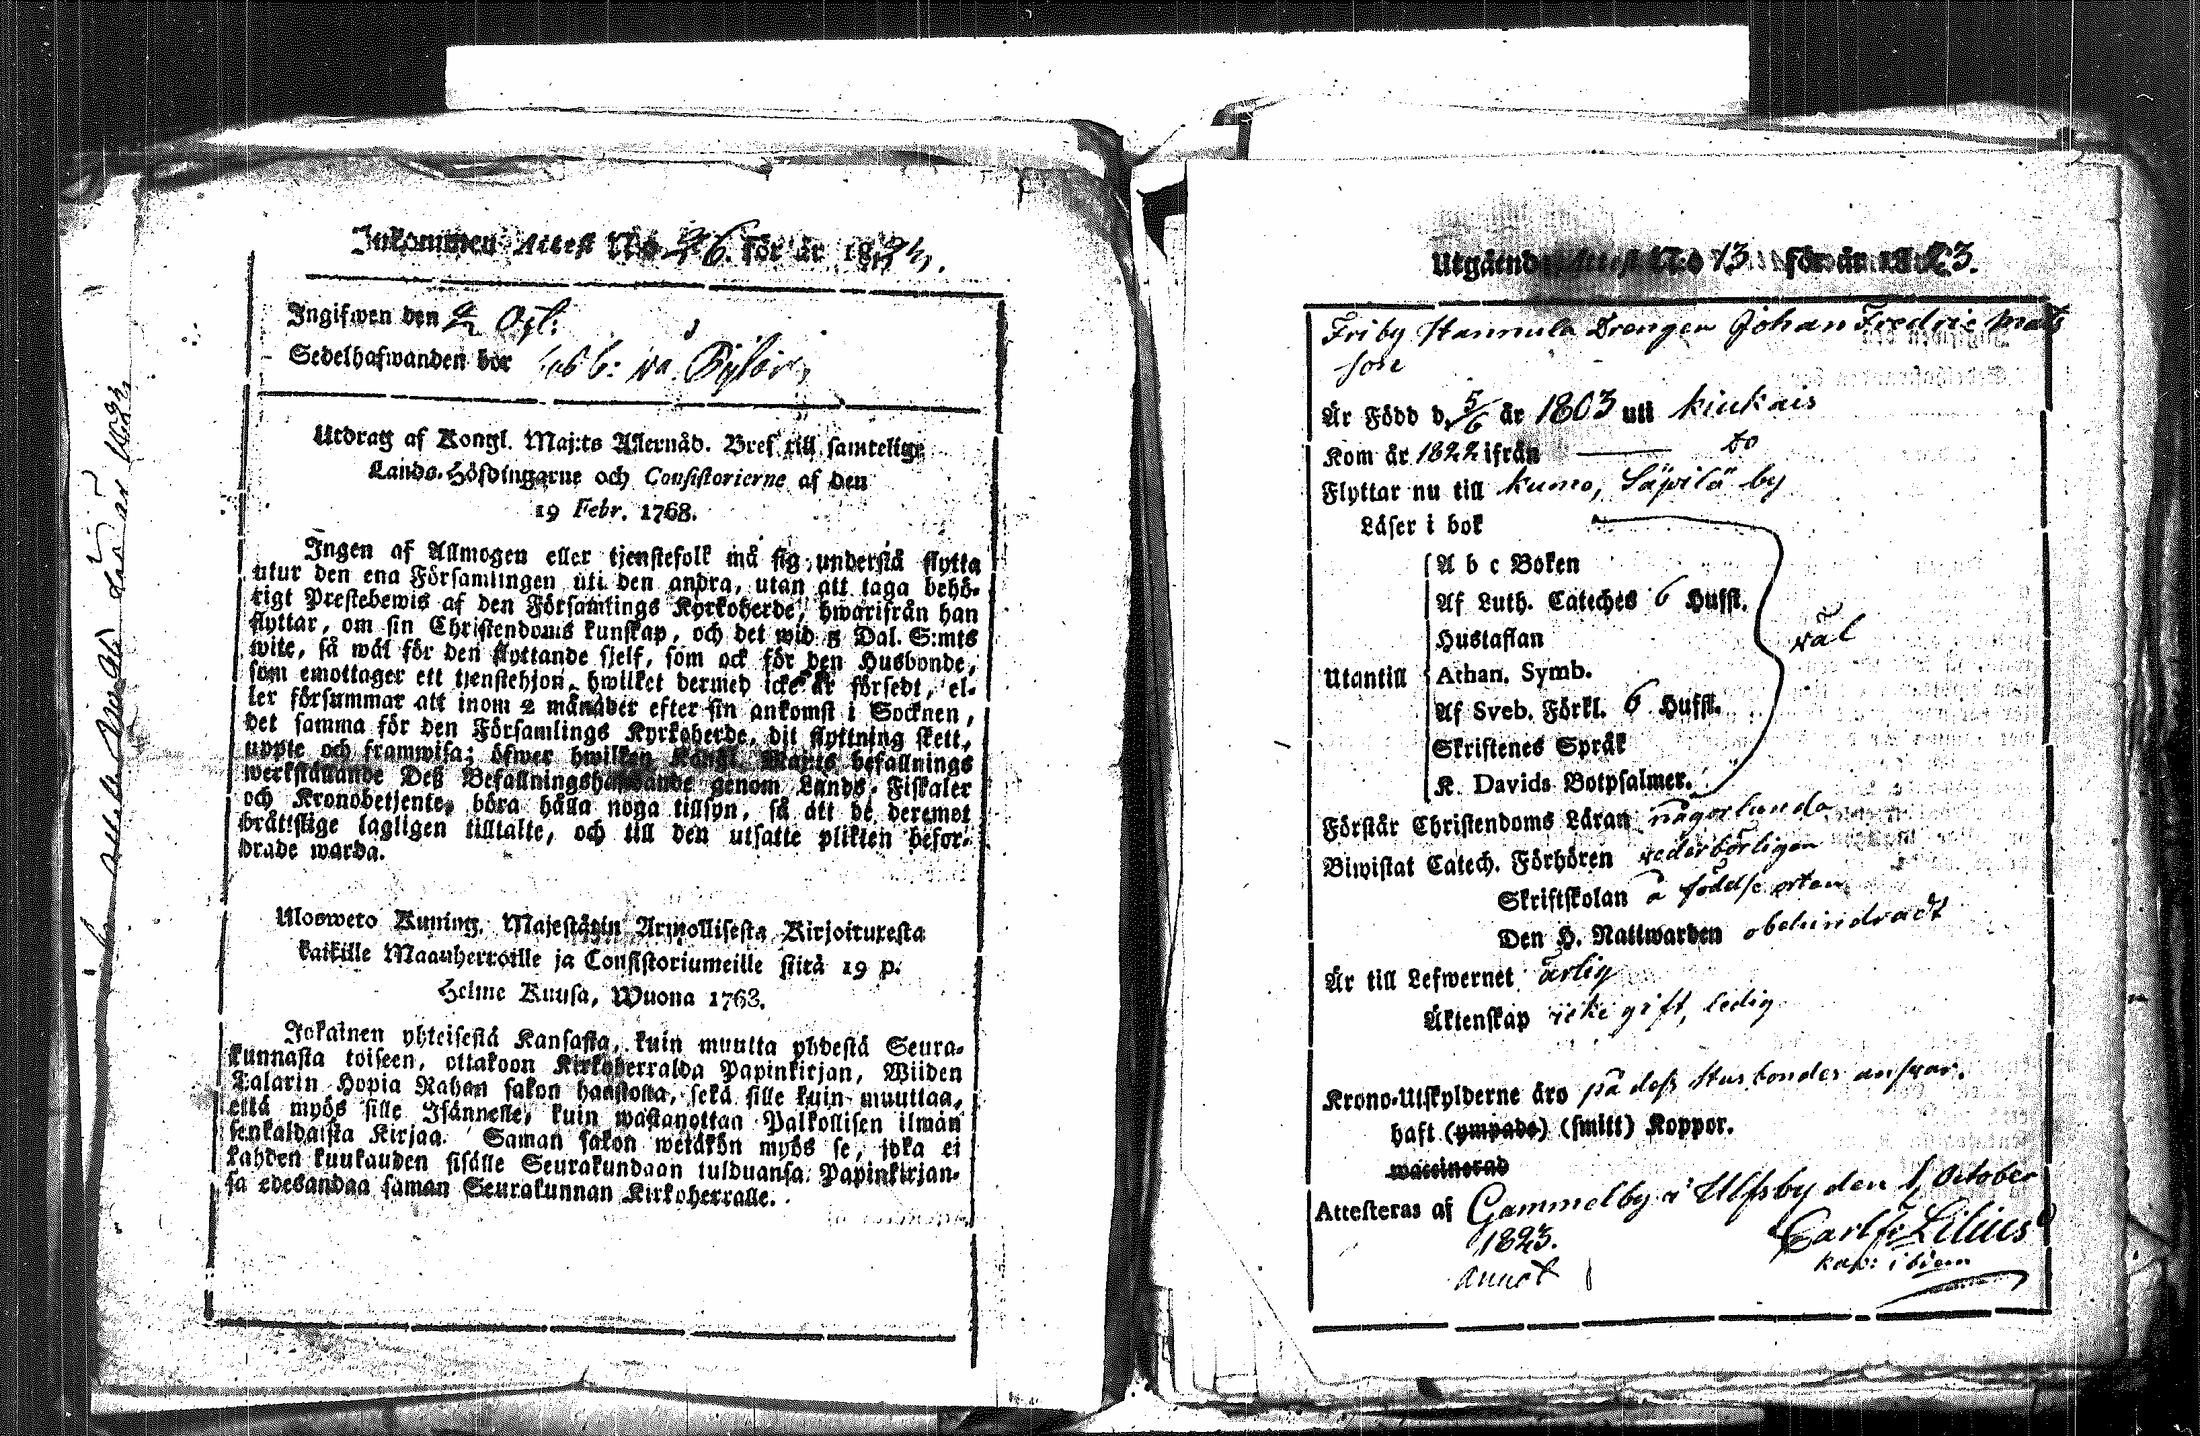 Inkommen Attest N:o 26. för år 1824.
Ingifwen den 9/2 Ogl:
Sedelhafwanden bor
Utdrag af Kongl. Maj:ts Allernåd. Bref till samtelige
Lands-Höfdingarne och Consistorierne af den
19 Febr. 1768.
Ingen af Allmogen eller tjenstefolk må sig understå flytta
utur den ena Församlingen uti den andra, utan att taga behö-
rigt Prestebewis af den Församlings Kyrkoherde, hwarifrån han
flyttar, om sin Christendoms kunskap, och det wid 5 Dal. S:mts
wite, så wäl för den flyttande sjelf, som ock för den Husbonde,
som emottager ett tjenstehjon, hwilket dermed icke är försedt, el-
ler försummar att inom 2 månader efter sin ankomst i Socknen,
det samma för den Församlings Kyrkoherde, dit flyttning skett,
uppte och framwisa; öfwer hwilken Kongl. Maj:ts befallnings
werkställande Deß Befallningshafwande genom Lands-Fiskaler
och Kronobetjente, böra hålla noga tillsyn, så att de deremot
bråttslige lagligen tilltalte, och till den utsatte plikten befor-
drade warda.
Ulosweto Kuning. Majestätin Armollisesta Kirjoituxesta
kaikille Maanherroille ja Consistoriumeille siitä 19 p.
Helme Kuusa, Wuona 1763.
Jokainen yhteisestä Kansasta, kuin muutta yhdestä Seura-
kunnasta toiseen, ottakoon Kirkoherralda Papinkirjan, Wiiden
Talarin Hopia Rahan sakon haastolla, sekä sille kuin muuttaa,
että myös sille Isännelle, kuin wastanottan Palkollisen ilman
senkaldaista Kirjaa. Saman sakon wetäkön myös se, joka ei
kahden kuukauden sisälle Seurakundaan tulduansa Papinkirjan-
sa edesandaa saman Seurakunnan Kirkoherralle.
Utgående Attest N:o 13 för år 1823.
Friby Hannula Drengen Johan Fredric Mats
son
Är Född d. 5/6 år 1803 uti Kiukais
Kom år 1822 ifrån —— do
Flyttar nu till Kumo, Säpilä by
Läser i bok
A b c Boken
Af Luth. Cateches 6 Hufst.
Hustaflan
Utantill Athan. Symb. wäl
Af Sveb. Förkl. 6 Hufst.
Skriftenes Språk
K. Davids Botpsalmer.
Förstår Christendoms Läran någorlunda
Biwistat Catech. Förhören vederbörligen
Skriftskolan å födelse orten
Den H. Nattwarden obehindradt
Är till Lefwernet ärlig
Äktenskap icke gift, ledig
Krono-Utskylderne äro på deß Husbondes answar.
haft (ympade) (smitt) Koppor.
waccinerad
Attesteras af Gammelby i Ulfsby den 1 October
1823. Carl Fr Lilius
annot kap: ibidem